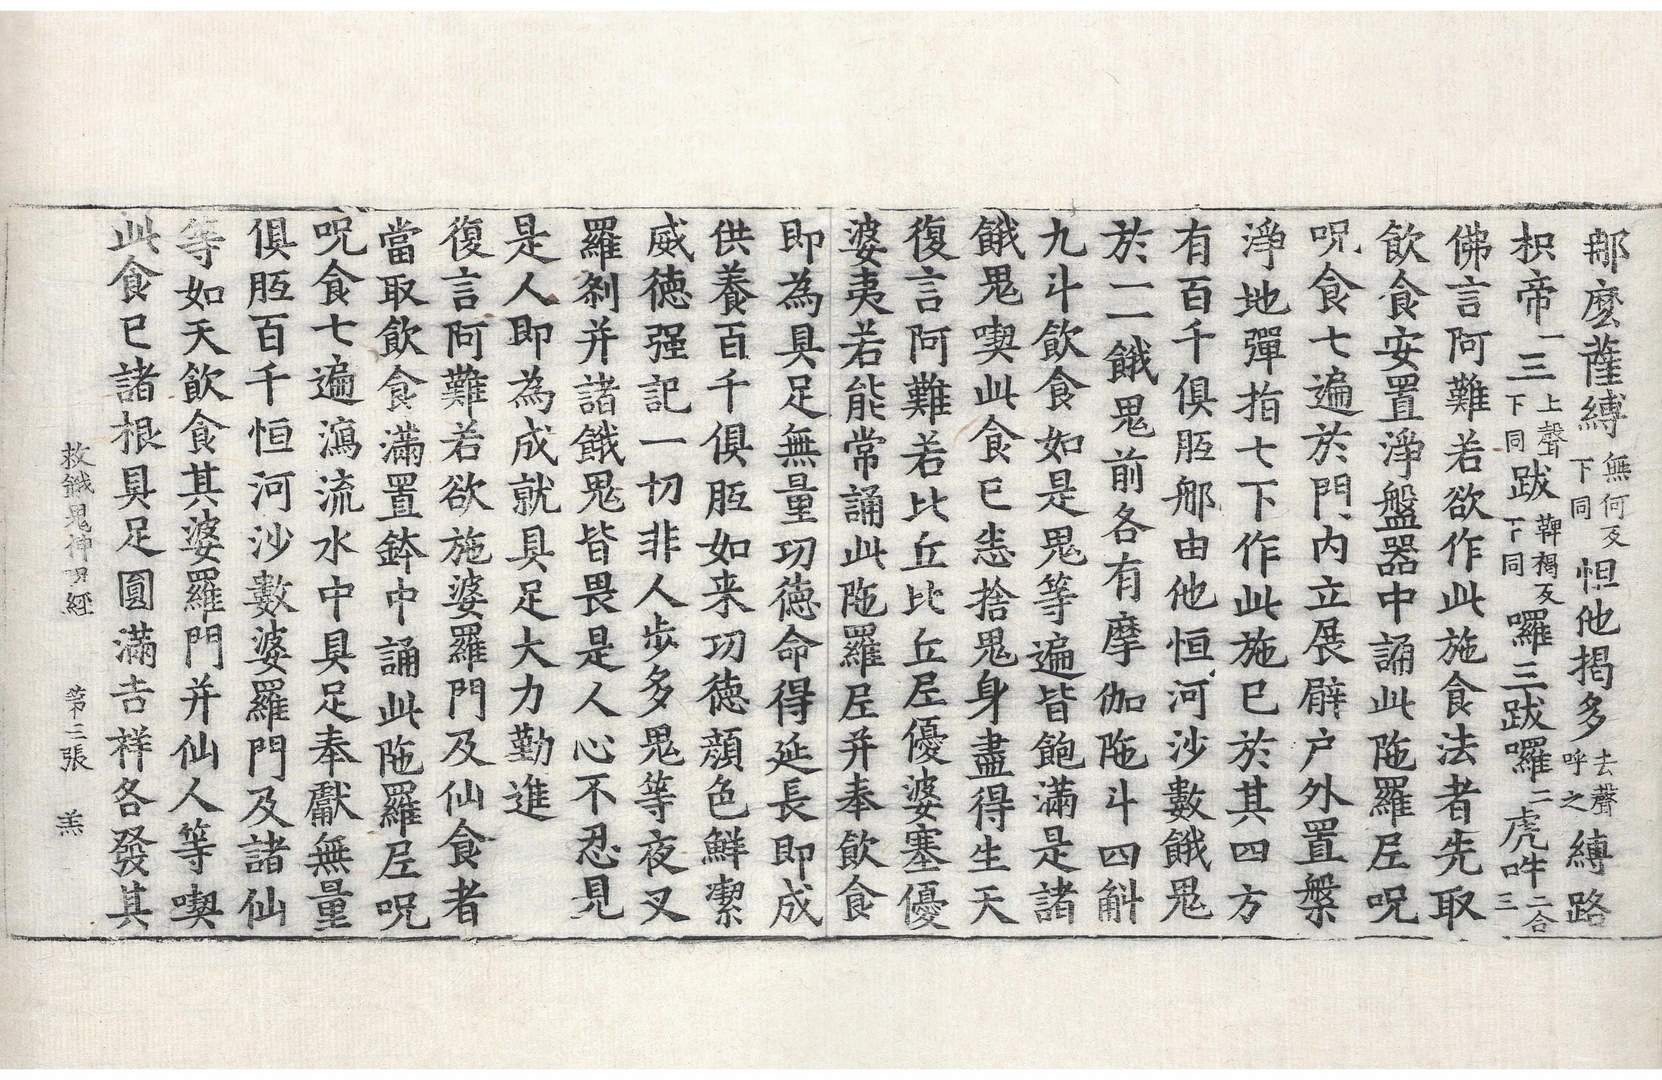 那麽薩縛無何反下同怛他揭多去聲呼之縛路
枳帝一三上聲下同跋鞞褐反下同囉三跋囉二虎吽二合三
佛言阿難若欲作此施食法者先取
飮食安置淨盤器中誦此陁羅尼呪
呪食七遍於門內立展臂户外置槃
淨地彈指七下作此施已於其四方
有百千俱胝那由他恒河沙數餓鬼
於一一餓鬼前各有摩伽陁斗四斛
九斗飮食如是鬼等遍皆飽滿是諸
餓鬼喫此食已悉捨鬼身盡得生天
復言阿難若比丘比丘尼優婆塞優
婆夷若能常誦此陁羅尼并奉飮食
即為具足無量功德命得延長即成
供養百千俱胝如来功德顔色鮮潔
威德强記一切非人步多鬼等夜叉
羅刹并諸餓鬼皆畏是人心不忍見
是人即為成就具足大力勤進
復言阿難若欲施婆羅門及仙食者
當取飮食滿置鉢中誦此陁羅尼呪
呪食七遍瀉流水中具足奉獻無量
俱胝百千恒河沙數婆羅門及諸仙
等如天飮食其婆羅門并仙人等喫
此食已諸根具足圓滿吉祥各發其
救餓鬼神呪經　第三張　羔